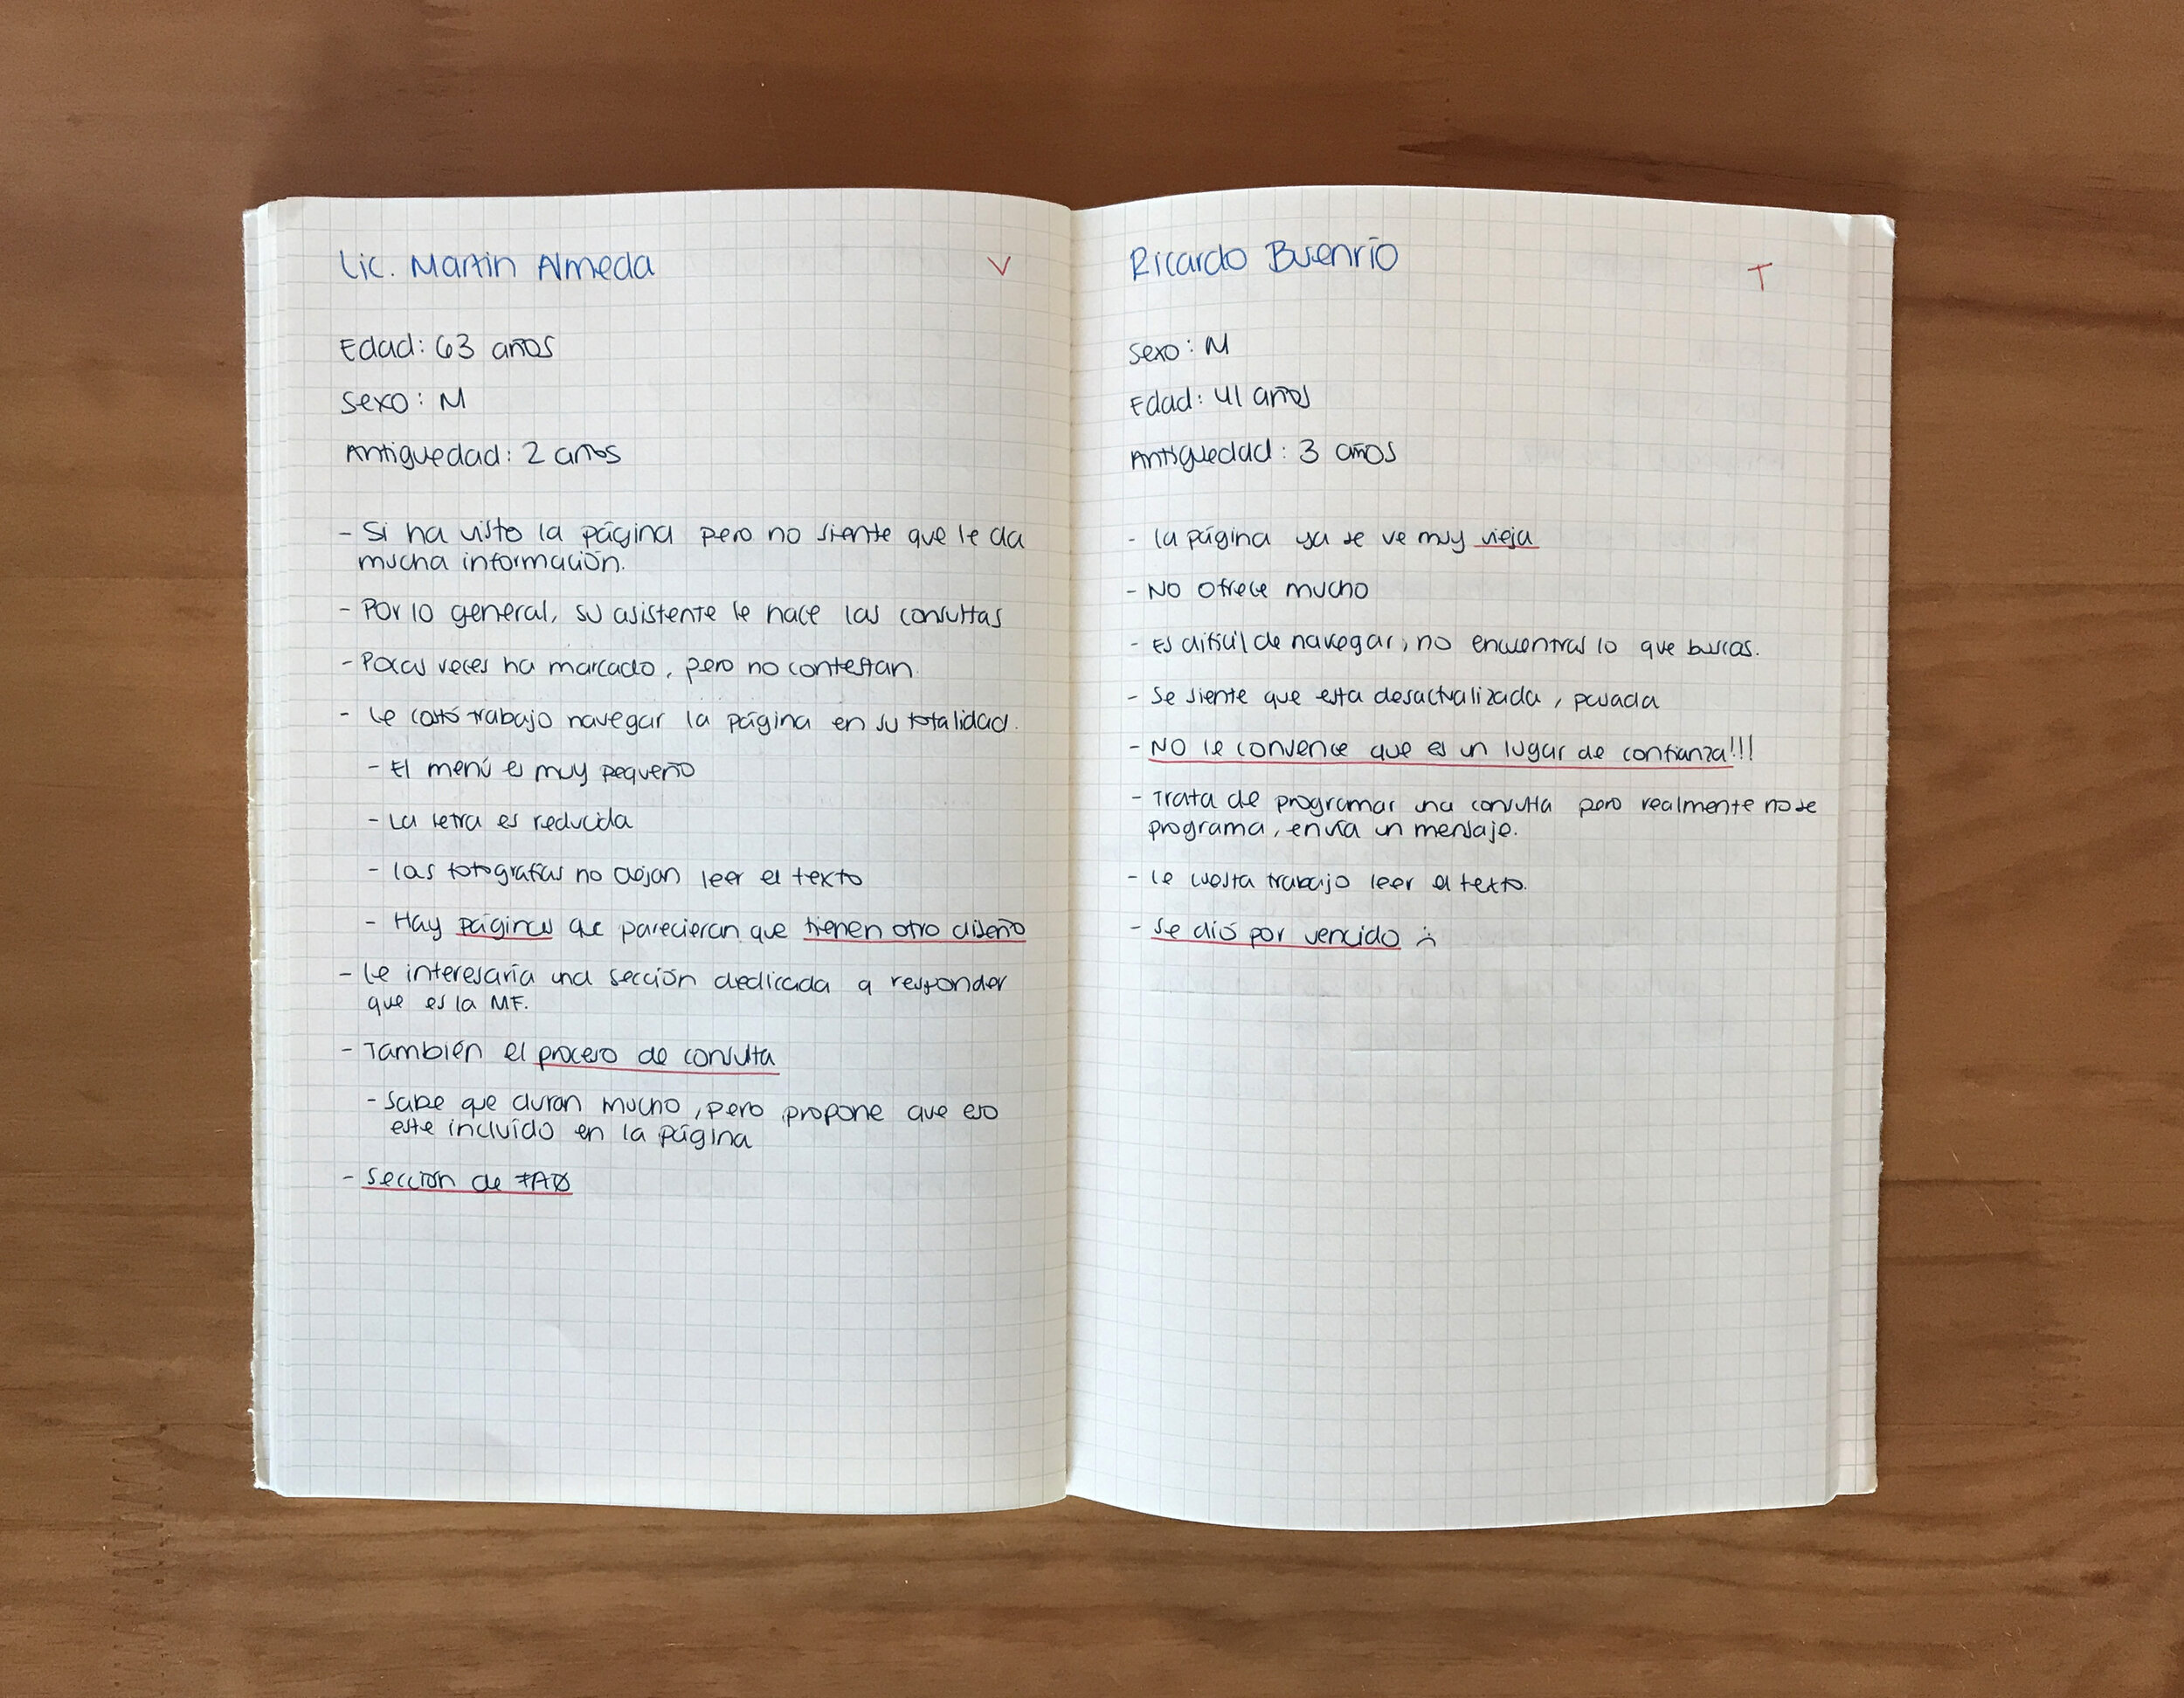 Lic. Martin Almeda
V
Edad: 63 años
Sexo: M
Antiguedad: 2 años
- Si ha visto la página pero no siente que le da
mucha información.
- Por lo general, su asistente le hace las consultas
- Pocas veces ha marcado, pero no contestan.
- Le costó trabajo navegar la página en su totalidad.
- El menú es muy pequeño
- La letra es reducida
- Las fotografías no dejan leer el texto
- Hay páginas que parecieran que tienen otro diseño
- Le interesaría una sección dedicada a responder
que es la MF.
- También el proceso de consulta
- Sabe que duran mucho, pero propone que eso
este incluído en la página
- Sección de FAQ
Ricardo Buenrío
T
Sexo: M
Edad: 41 años
Antiguedad: 3 años
- La página ya se ve muy vieja
- No ofrece mucho
- Es difícil de navegar, no encuentras lo que buscas.
- Se siente que esta desactualizada, pasada
- NO le convence que es un lugar de confianza!!!
- Trata de programar una consulta pero realmente no se
programa, envía un mensaje.
- Le cuesta trabajo leer el texto.
- Se dió por vencido :(